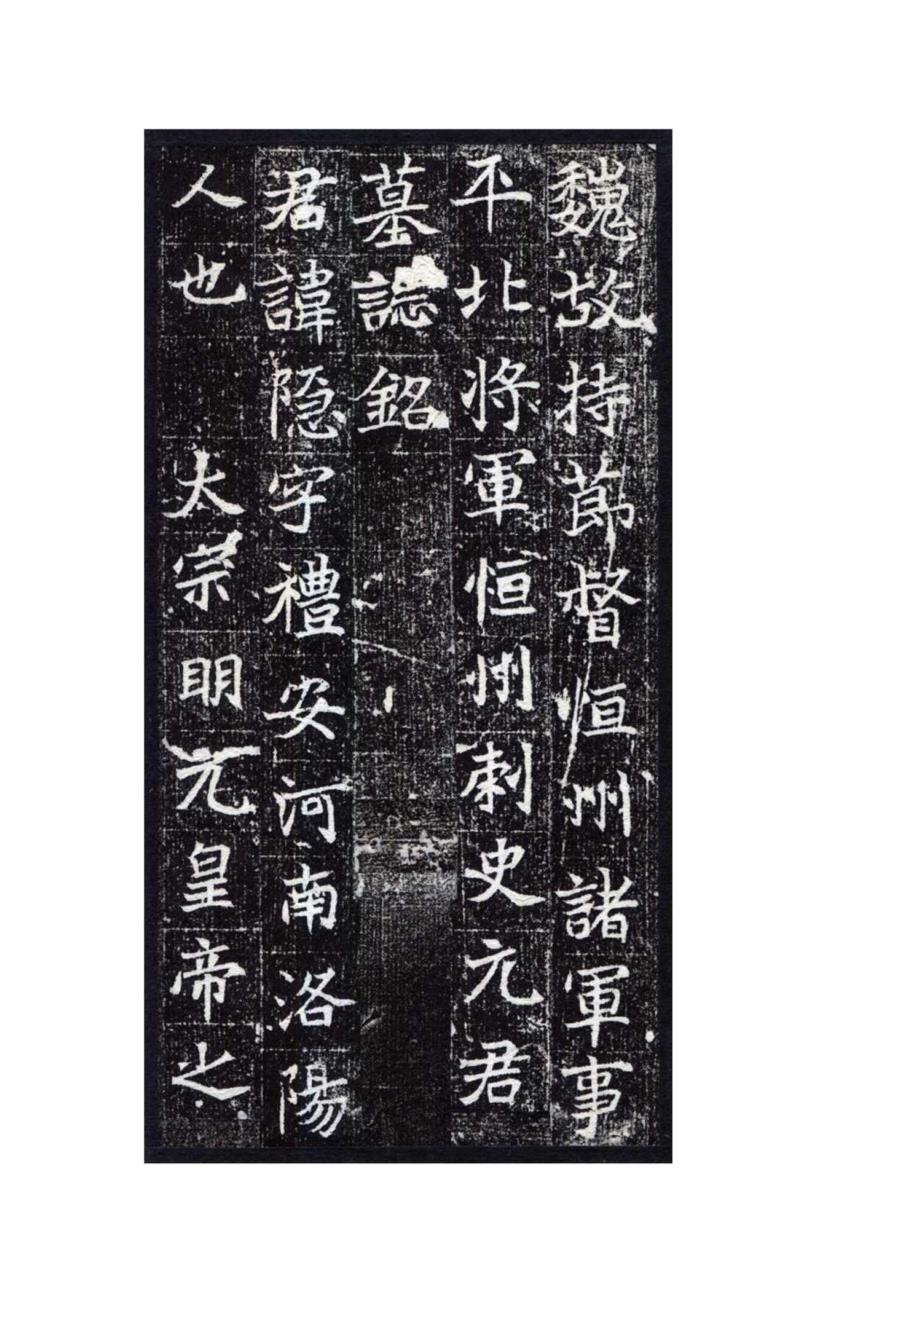 魏故持節督恒州諸軍事
平北將軍恒州刺史元君
墓誌銘
君諱隐字禮安河南洛陽
人也　太宗明元皇帝之